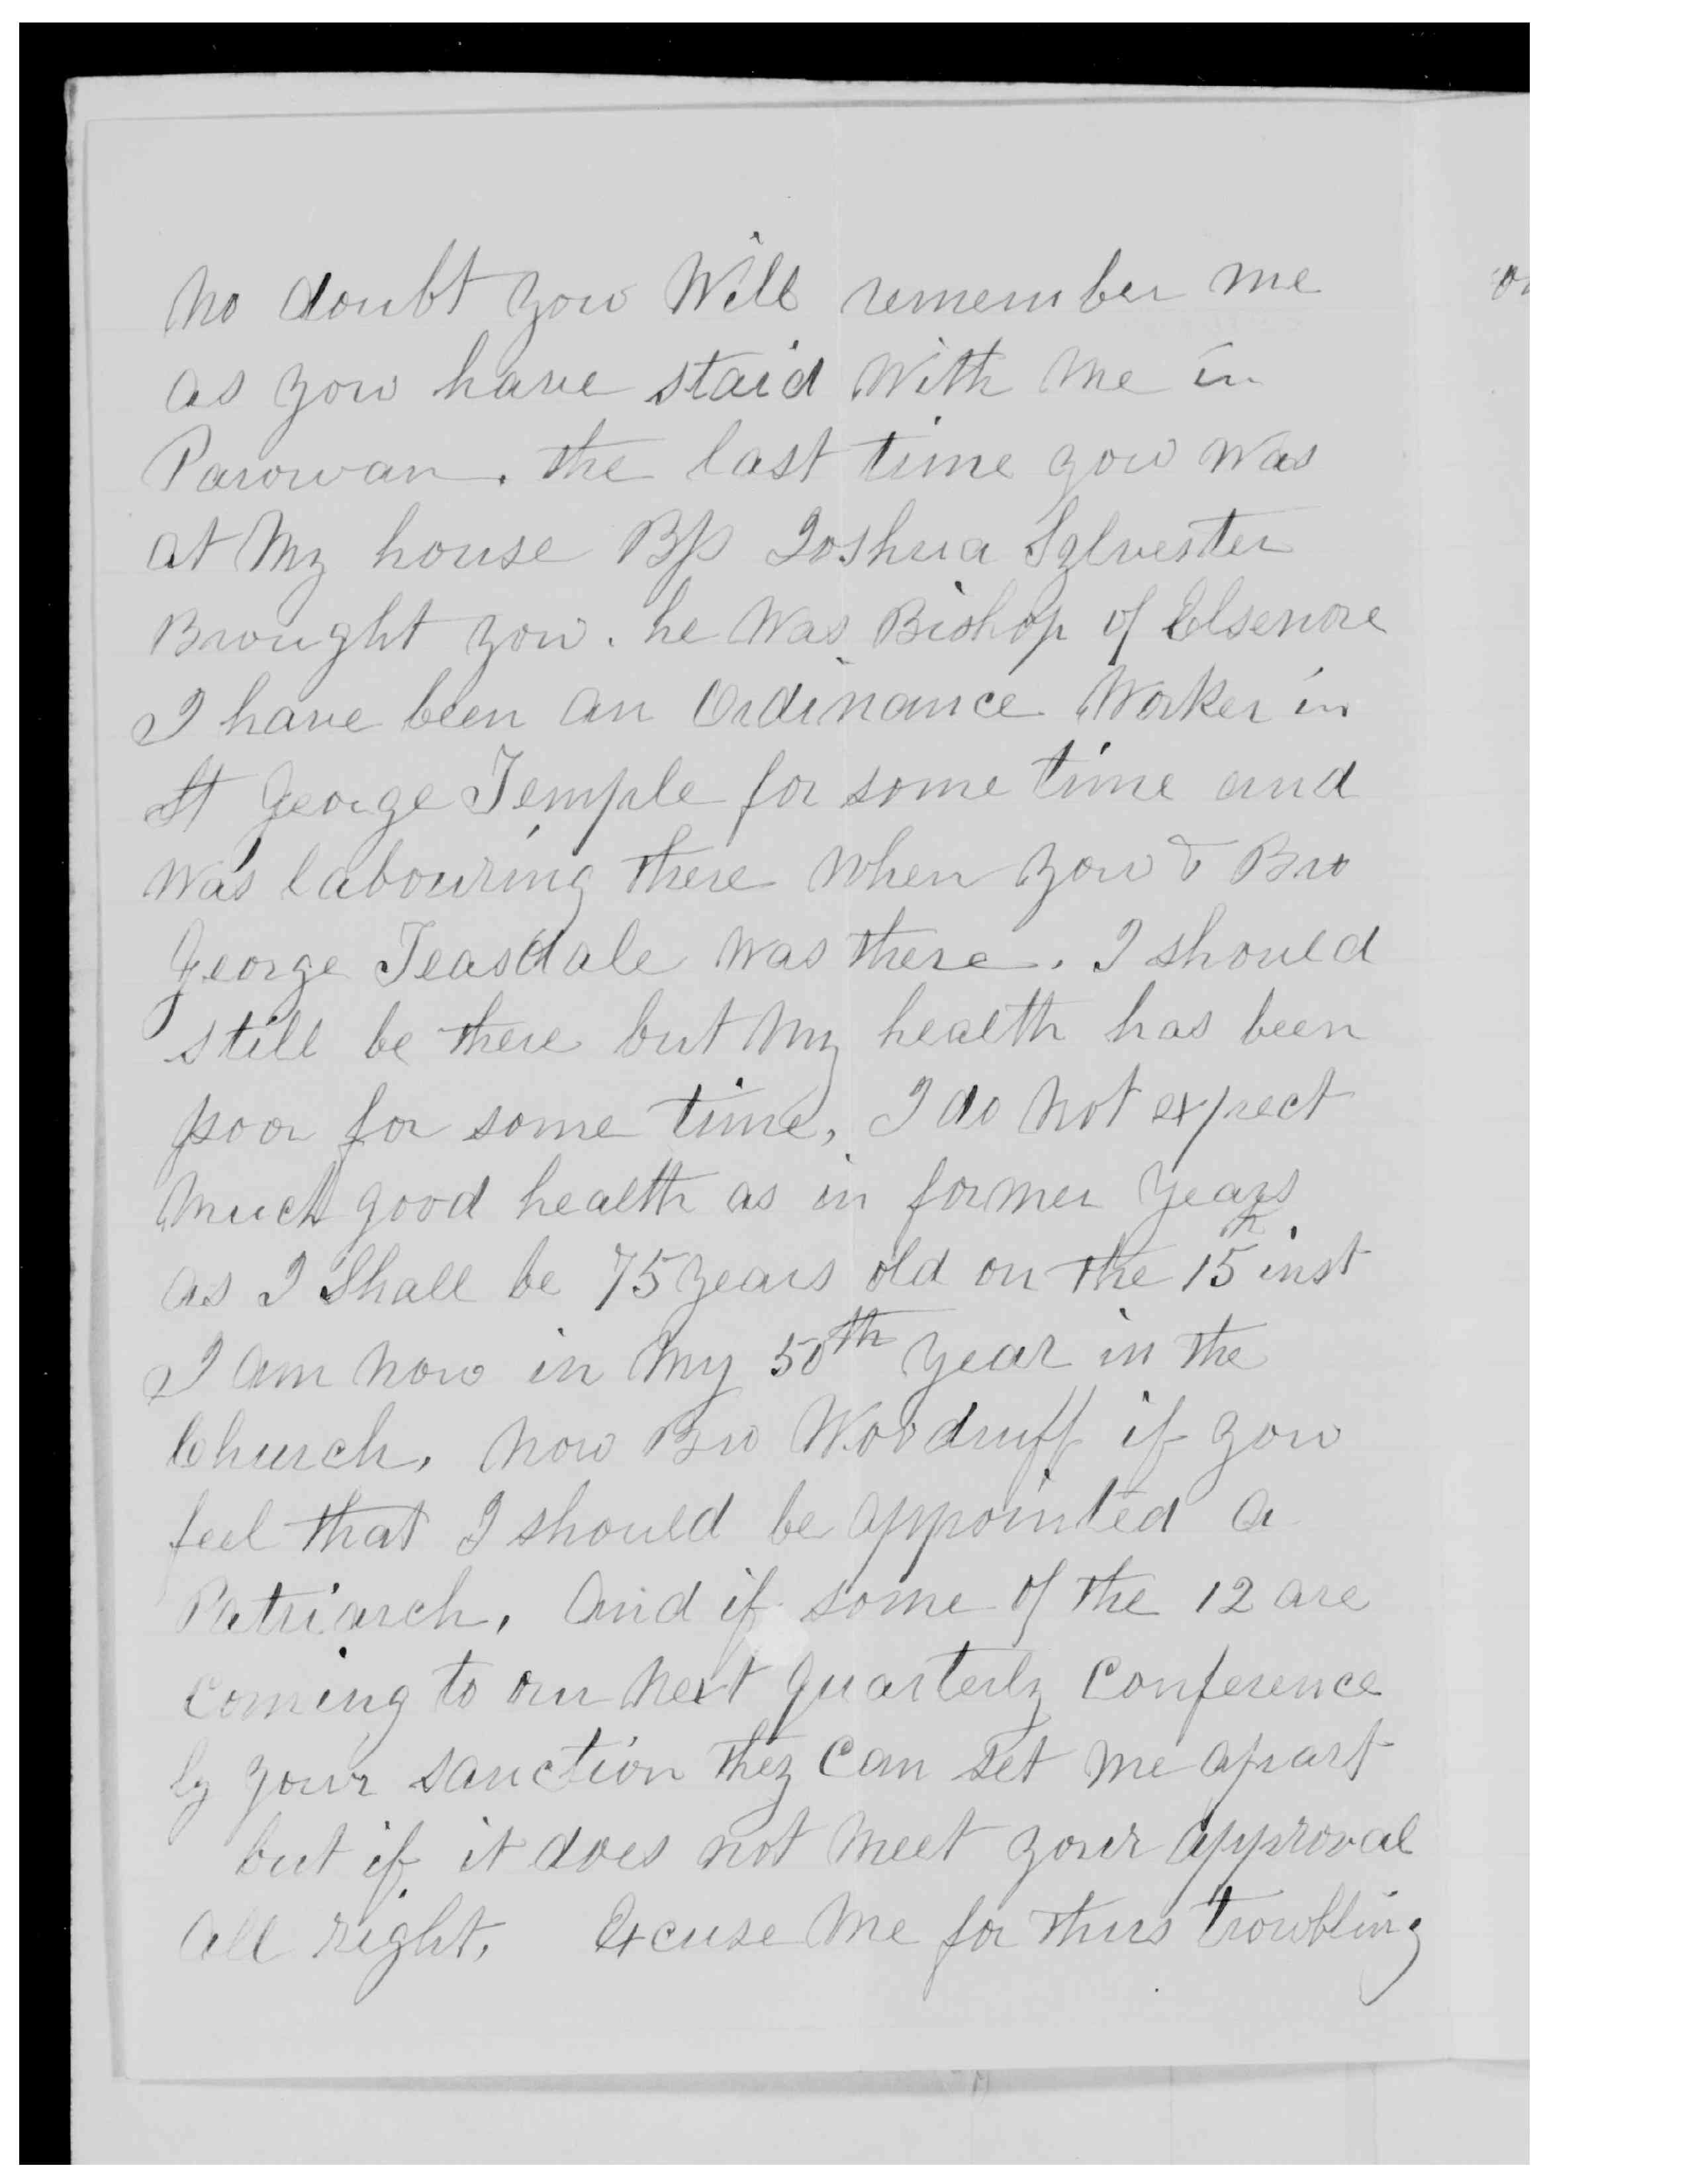 No doubt you Will remember me
as you have staid With Me in
Parowan. the last time you Was
at My house Bp Joshua Sylvester
Brought you. he Was Bishop of Elsenore
I have been an Ordinance Worker in
St George Temple for some time and
Was labouring there When you & Bro
George Teasdale Was there. I should
still be there but My health has been
poor for some time, I do Not expect
Much good health as in former years
as I Shall be 75 years old on the 15th inst
I am Now in My 50th year in the
Church, Now Bro Woodruff if you
feel that I should be appointed a
Patriarch, And if some of the 12 are
Coming to our Next Quarterly Conference
by your sanction they Can set Me apart
but if it does not Meet your approval
All right, Excuse Me for thus trowbling